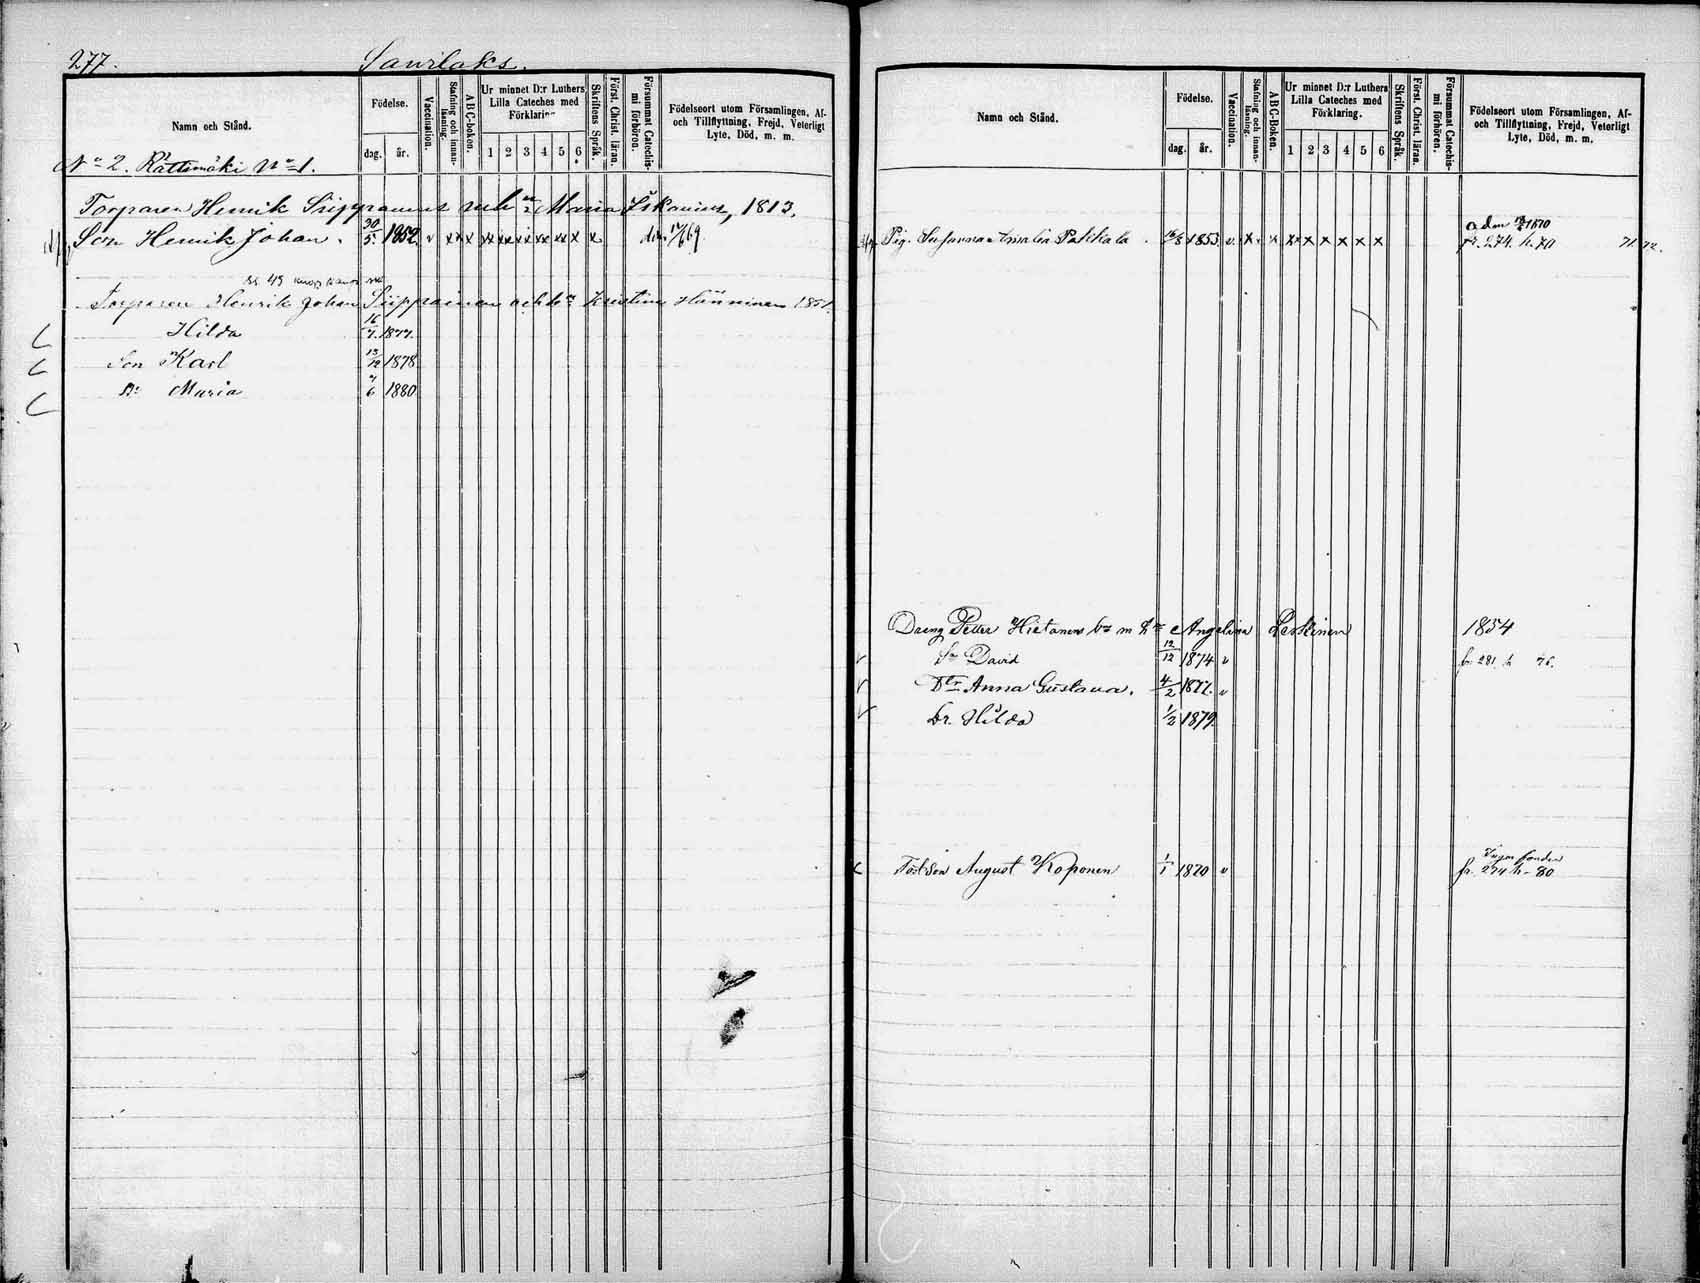 277. Sawilaks.
Namn och Stånd.
Födelse.
dag. år.
Vaccination.
Stafning och innan-läsning.
ABC-boken.
Ur minnet D:r Luthers
Lilla Cateches med
Förklaring.
1 2 3 4 5 6
Skriftens Språk.
Först. Christ. läran.
Försummat Catechis-
mi förhören.
Födelseort utom Församlingen, Af-
och Tillflyttning, Frejd, Veterligt
Lyte, Död, m. m.
No 2. Rättimäki No 1.
Torparen Henrik Siippainens Maria 1813.
Son Henrik Johan. 30/5. 1852. v xx x xx xx xx xx xx x x /69
Torparen Henrik Johan Siippainen och h Kristina Hänninen 1851.
Hilda 16/7. 1877.
Son Karl 13/12 1878
Dr Maria 7/6 1880
Namn och Stånd.
Födelse.
dag. år.
Vaccination.
Stafning och innan-läsning.
ABC-Boken.
Ur minnet D:r Luthers
Lilla Cateches med
Förklaring.
1 2 3 4 5 6
Skriftens Språk.
Först. Christ. läran.
Försummat Catechis-
mi förhören.
Födelseort utom Församlingen, Af-
och Tillflyttning, Frejd, Veterligt
Lyte, Död, m. m.
Pig. Susanna Amalia Pakkala 1853 v. x x xx x x x x x fr. 274. h. 70 71 72.
Dreng Petter Hietanens m h Angelina 1854
Sn David 12/12 1874 v fr 281 h 76.
Dtr Anna Gustava. 4/2 1877. v
Dr. Hilda 1/2 1879
Fost Son August Koponen 1/1 1870 v fr. 274 h. 80